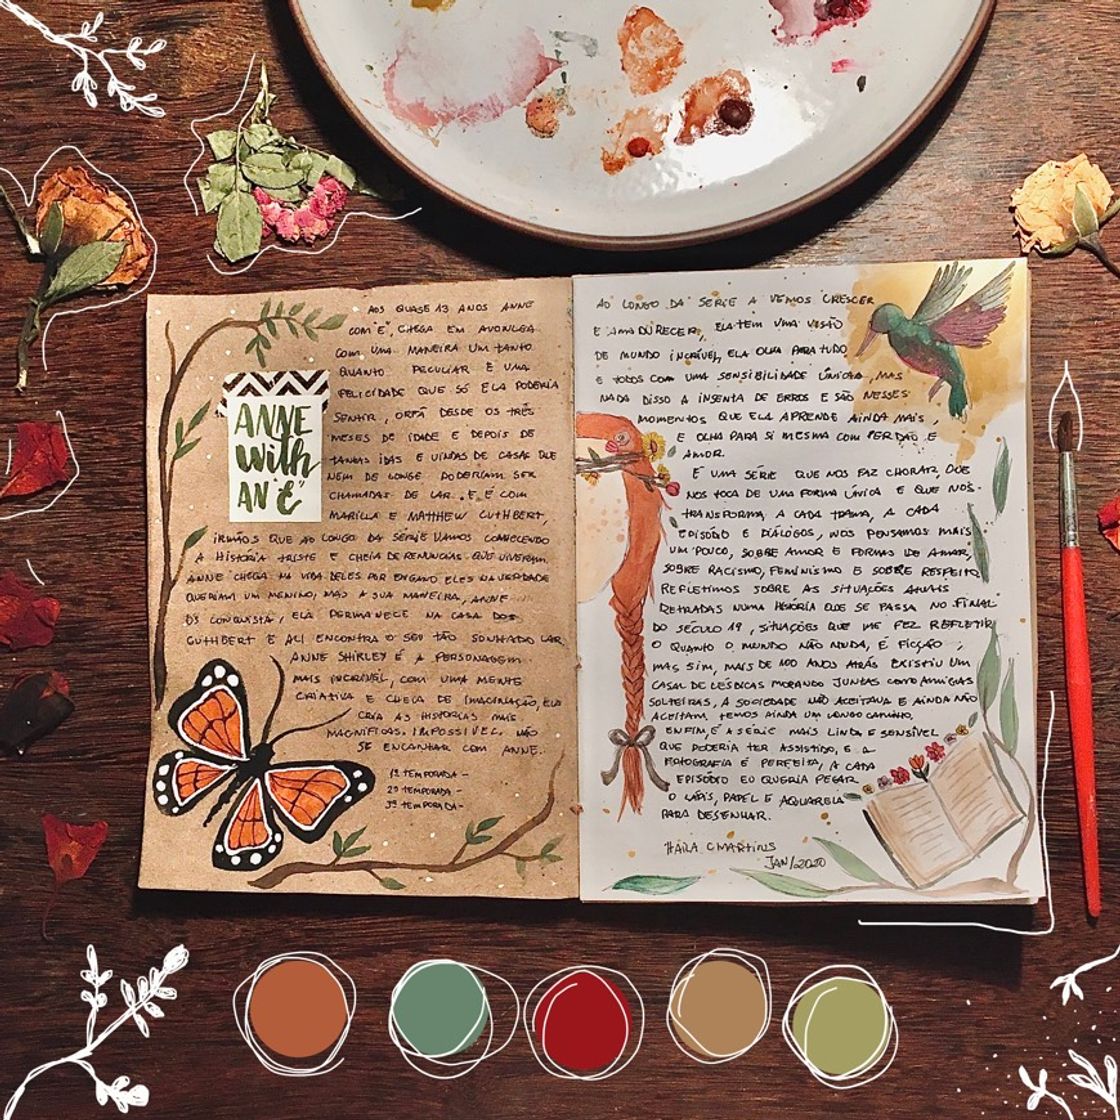 AOS QUASE 13 ANOS ANNE
COM "E", CHEGA EM AVONLEA
COM UMA MANEIRA UM TANTO
QUANTO PECULIAR E UMA
FELICIDADE QUE SÓ ELA PODERIA
SENTIR, ORFÃ DESDE OS TRÊS
MESES DE IDADE E DEPOIS DE
TANTAS IDAS E VINDAS DE CASAS QUE
NEM DE LONGE PODERIAM SER
CHAMADAS DE LAR. E É COM
MARILLA E MATTHEW CUTHBERT,
IRMÃOS QUE AO LONGO DA SÉRIE VAMOS CONHECENDO
A HISTÓRIA TRISTE E CHEIA DE RENUNCIAS QUE VIVERAM.
ANNE CHEGA NA VIDA DELES POR ENGANO, ELES NA VERDADE
QUERIAM UM MENINO, MAS A SUA MANEIRA, ANNE
OS CONQUISTA, ELA PERMANECE NA CASA DOS
CUTHBERT E ALI ENCONTRA O SEU TÃO SONHADO LAR.
ANNE SHIRLEY É A PERSONAGEM
MAIS INCRÍVEL, COM UMA MENTE
CRIATIVA E CHEIA DE IMAGINAÇÃO, ELA
CRIA AS HISTORIAS MAIS
MAGNÍFICAS. IMPOSSÍVEL NÃO
SE ENCANTAR COM ANNE.
1ª TEMPORADA -
2ª TEMPORADA -
3ª TEMPORADA -
ANNE
with
AN "E"
AO LONGO DA SÉRIE A VEMOS CRESCER
E AMADURECER, ELA TEM UMA VISÃO
DE MUNDO INCRÍVEL, ELA OLHA PARA TUDO
E TODOS COM UMA SENSIBILIDADE ÚNICA, MAS
NADA DISSO A INSENTA DE ERROS E SÃO NESSES
MOMENTOS QUE ELA APRENDE AINDA MAIS,
E OLHA PARA SI MESMA COM PERDÃO E
AMOR.
É UMA SÉRIE QUE NOS FAZ CHORAR, QUE
NOS TOCA DE UMA FORMA ÚNICA E QUE NOS
TRANSFORMA A CADA TRAMA, A CADA
EPISÓDIO E DIÁLOGOS, NOS PENSAMOS MAIS
UM POUCO, SOBRE AMOR E FORMAS DE AMAR,
SOBRE RACISMO, FEMINISMO E SOBRE RESPEITO
REFLETIMOS SOBRE AS SITUAÇÕES ATUAIS
RETRADAS NUMA HISTÓRIA QUE SE PASSA NO FINAL
DO SÉCULO 19, SITUAÇÕES QUE ME FEZ REFLETIR
O QUANTO O MUNDO NÃO MUDA, É FICÇÃO,
MAS SIM, MAIS DE 100 ANOS ATRÁS EXISTIU UM
CASAL DE LÉSBICAS MORANDO JUNTAS COMO AMIGAS
SOLTEIRAS, A SOCIEDADE NÃO ACEITAVA E AINDA NÃO
ACEITAM, TEMOS AINDA UM LONGO CAMINHO.
ENFIM, É A SÉRIE MAIS LINDA E SENSÍVEL
QUE PODERIA TER ASSISTIDO, E A
FOTOGRAFIA É PERFEITA, A CADA
EPISÓDIO EU QUERIA PEGAR
O LÁPIS, PAPEL E AQUARELA
PARA DESENHAR.
C MARTINS
JAN/2020